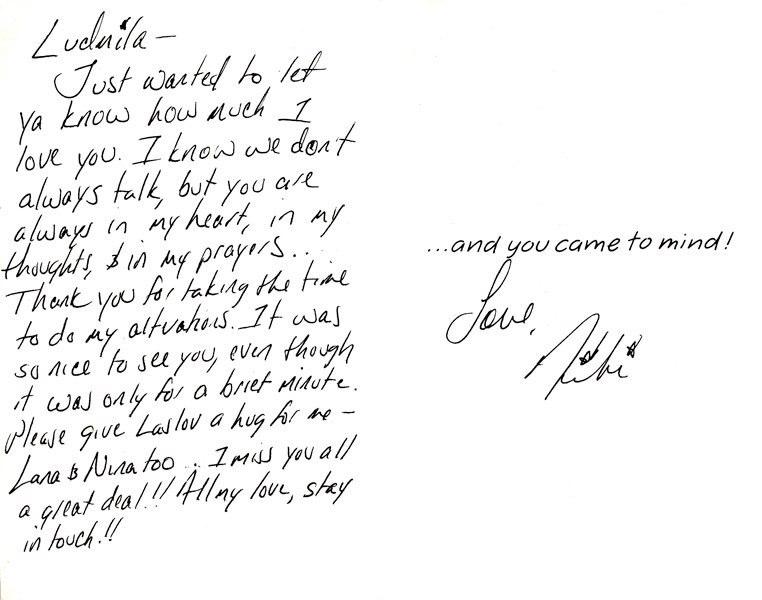 Ludmila—
Just wanted to let
ya know how much I
love you. I know we don't
always talk, but you are
always in my heart, in my
thoughts, & in my prayers...
Thank you for taking the time
to do my altuations. It was
so nice to see you, even though
it was only for a brief minute.
Please give Laslov a hug for me—
Lana & Nina too... I miss you all
a great deal!! All my love, stay
in touch!!
...and you came to mind!
Love,
Nikki